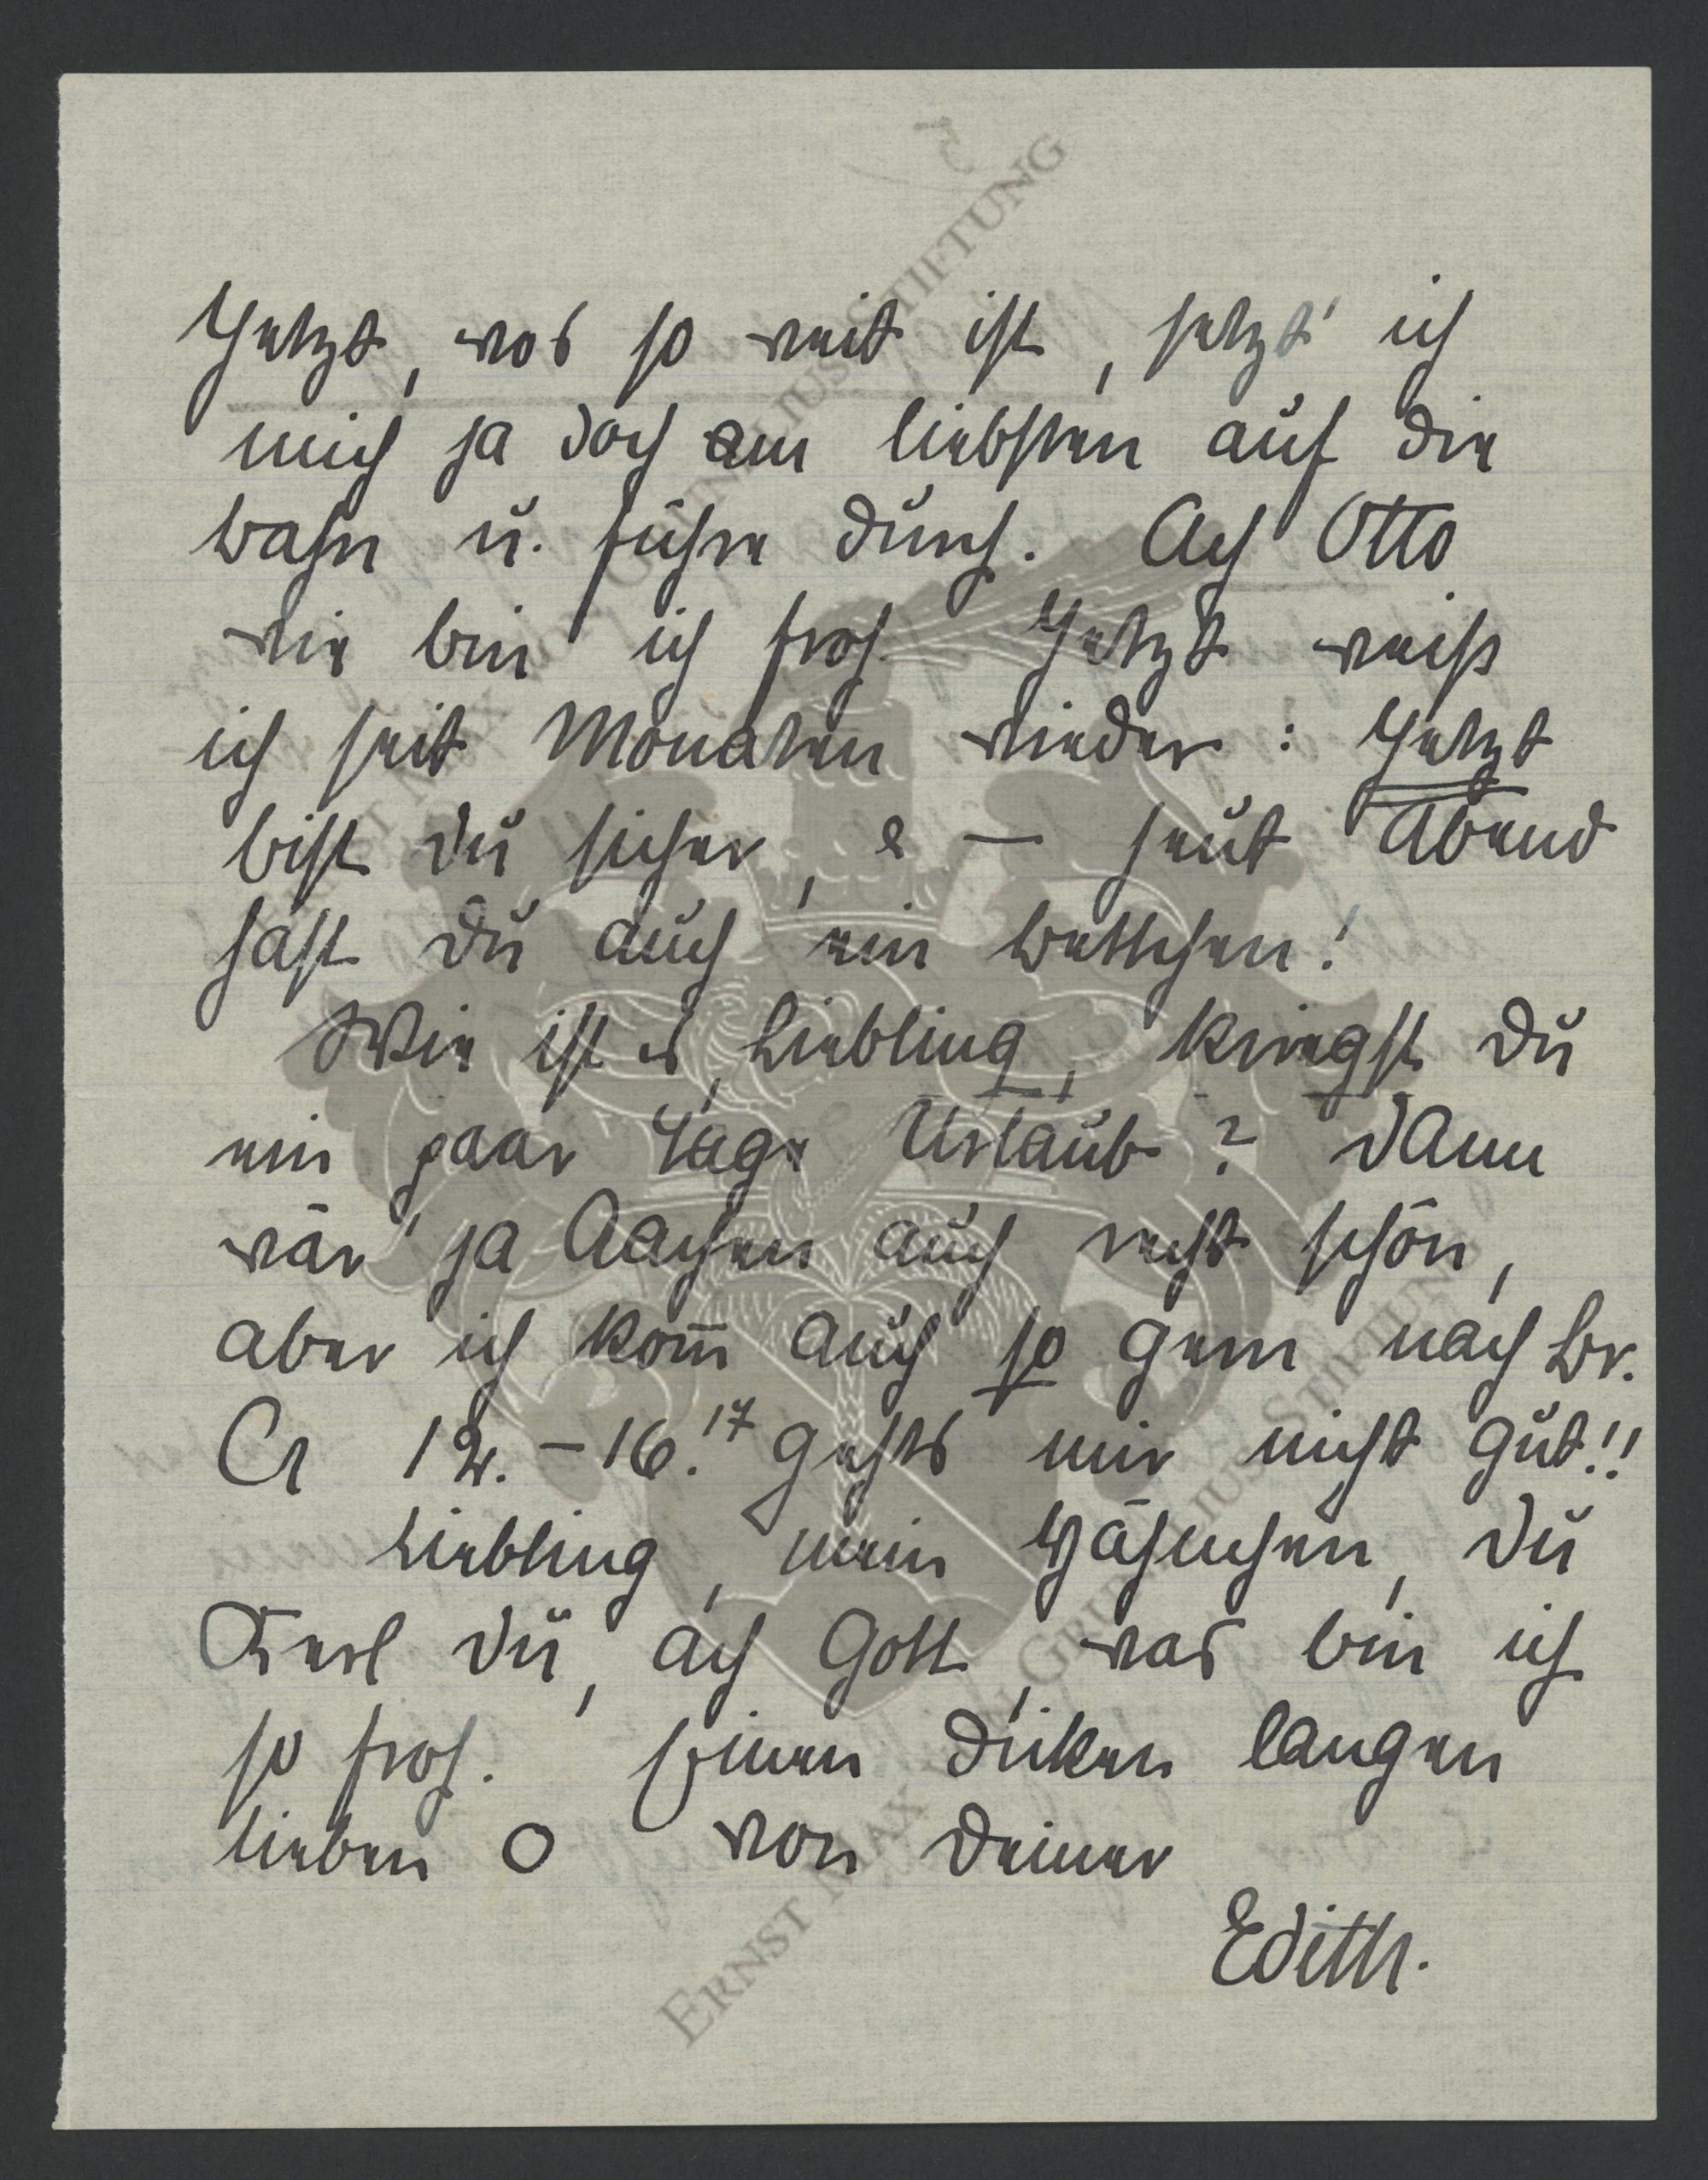 Jetzt, wos so weit ist, setzt' ich
mich ja doch am liebsten auf die
Bahn u. führe durch. Ach Otto
wie bin ich froh. Jetzt weiß
ich seit Monaten wieder: Jetzt
bist du sicher, & — heut Abend
hast du auch ein Bettchen!
Wie ist es, Liebling, kriegst du
ein paar Tage Urlaub? Dann
wär' ja Aachen auch recht schön,
aber ich kom̅ auch so gern nach Br.
12. – 16. 17 gehts mir nicht gut!!
Liebling, mein Hähnchen, du
Kerl du, ach Gott, was bin ich
so froh. Einen dicken langen
lieben O von deiner
Edith.
ERNST MAX VON GRUNELIUS-STIFTUNG
ERNST MAX VON GRUNELIUS-STIFTUNG